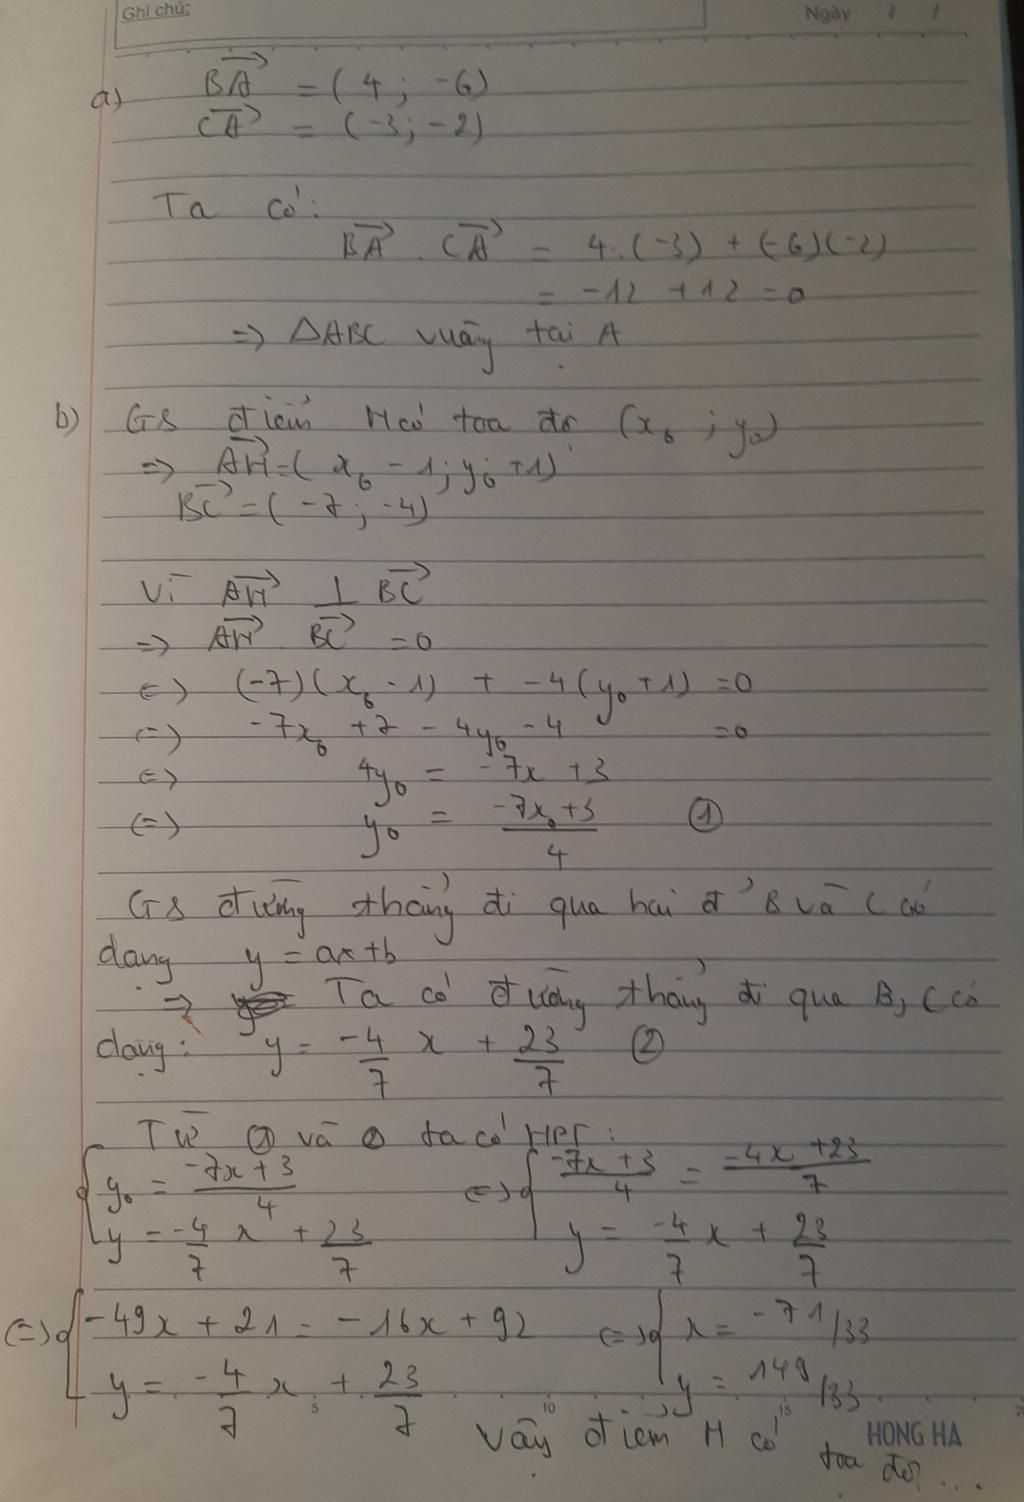 Ghi chú:
Ngày / /
a) BA→ = (4; -6)
CA→ = (-3; -2)
Ta có:
BA→ . CA→ = 4.(-3) + (-6)(-2)
= -12 + 12 = 0
=> △ABC vuông tại A
b) GS điểm H có tọa độ (x₀; y₀)
=> AH→ = (x₀ - 1; y₀ + 1)
BC→ = (-7; -4)
Vì AH→ ⊥ BC→
=> AH→ BC→ = 0
<=> (-7)(x₀ - 1) + -4(y₀ + 1) = 0
<=> -7x₀ + 7 - 4y₀ - 4 = 0
<=> 4y₀ = -7x + 3
<=> y₀ = (-7x₀ + 3)/4 ①
GS đường thẳng đi qua hai đ' B và C có
dạng y = ax + b
=> Ta có đường thẳng đi qua B, C có
dạng: y = -4/7 x + 23/7 ②
Từ ① và ② ta có HPT:
{ y₀ = (-7x + 3)/4 <=> { (-7x + 3)/4 = (-4x + 23)/7
y = -4/7 x + 23/7 y = -4/7 x + 23/7
<=> { -49x + 21 = -16x + 92 <=> { x = -71/33
y = -4/7 x + 23/7 y = 149/33
5 10 15
Vậy điểm H có tọa độ ...
HONG HA